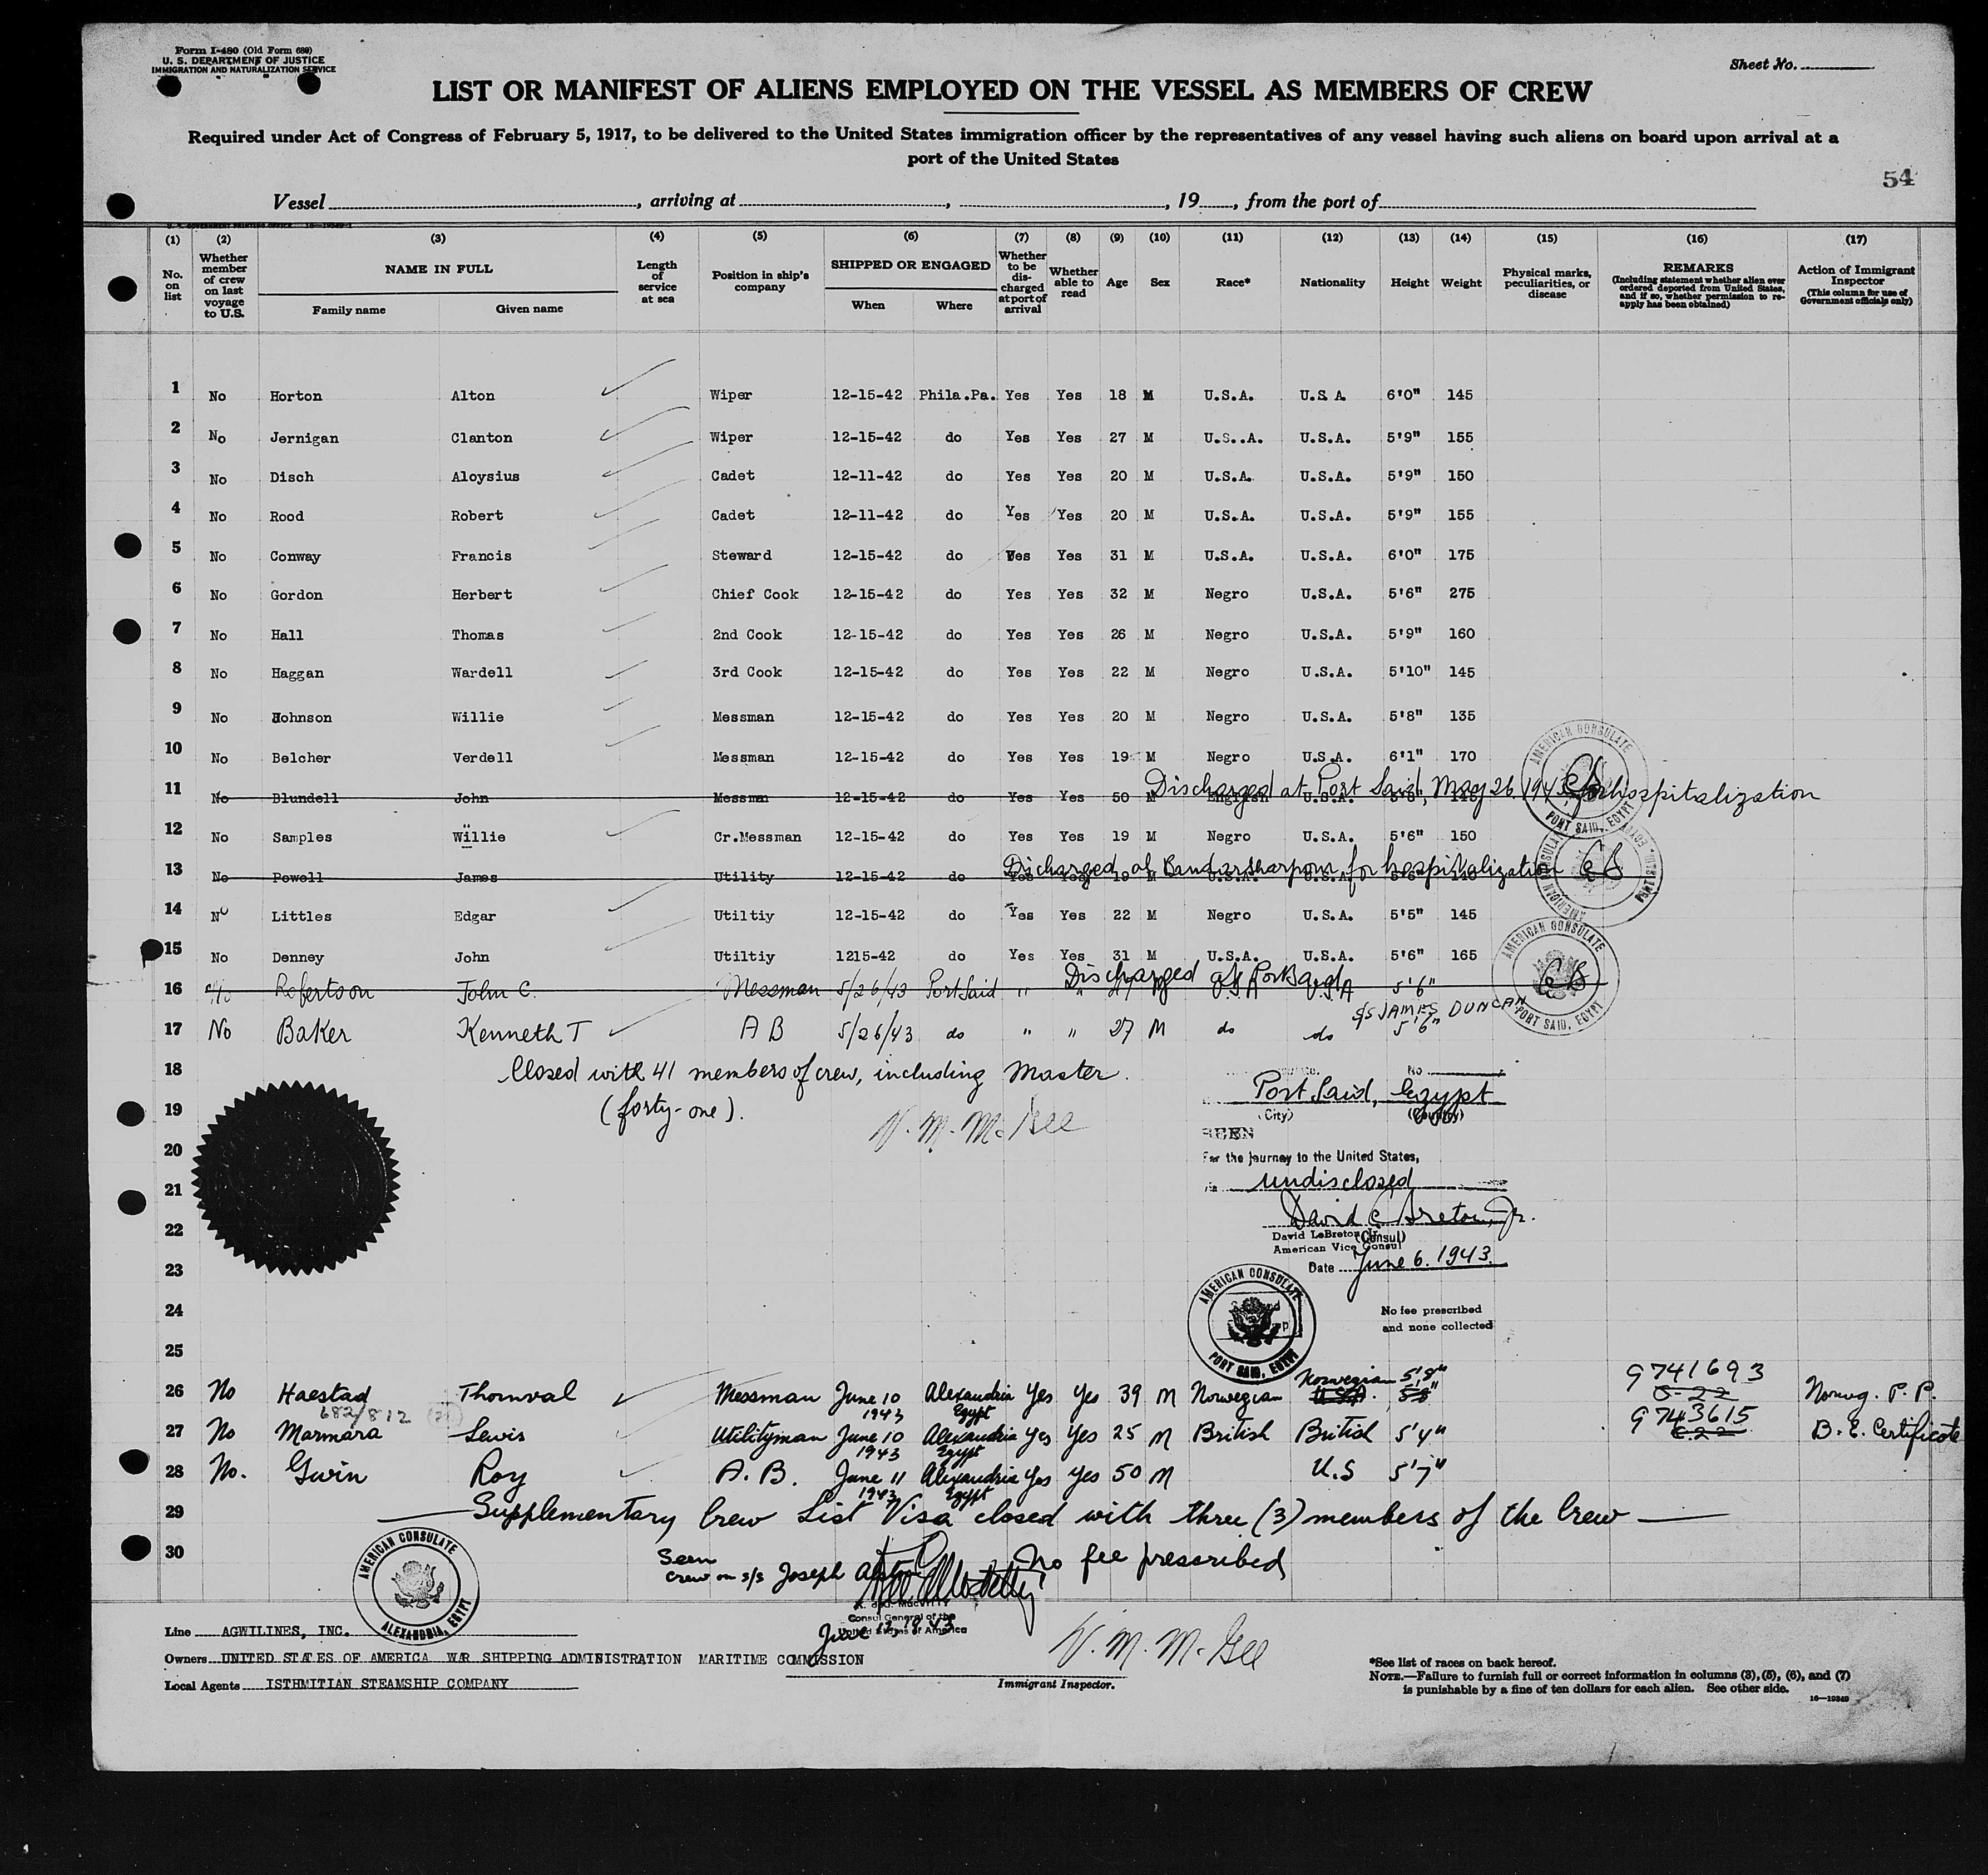 Form I-480 (Old Form 689)
U. S. DEPARTMENT OF JUSTICE
IMMIGRATION AND NATURALIZATION SERVICE
Sheet No.
LIST OR MANIFEST OF ALIENS EMPLOYED ON THE VESSEL AS MEMBERS OF CREW
Required under Act of Congress of February 5, 1917, to be delivered to the United States immigration officer by the representatives of any vessel having such aliens on board upon arrival at a
port of the United States
54
Vessel , arriving at , , 19 , from the port of
U. S. GOVERNMENT PRINTING OFFICE 16—19349-1
(1) (2) (3) (4) (5) (6) (7) (8) (9) (10) (11) (12) (13) (14) (15) (16) (17)
No. on list Whether member of crew on last voyage to U.S. NAME IN FULL Family name Given name Length of service at sea Position in ship's company SHIPPED OR ENGAGED When Where Whether to be discharged at port of arrival Whether able to read Age Sex Race* Nationality Height Weight Physical marks, peculiarities, or disease REMARKS (Including statement whether alien ever ordered deported from United States, and if so, whether permission to reapply has been obtained) Action of Immigrant Inspector (This column for use of Government officials only)
1 No Horton Alton Wiper 12-15-42 Phila.Pa. Yes Yes 18 M U.S.A. U.S.A. 6'0" 145
2 No Jernigan Clanton Wiper 12-15-42 do Yes Yes 27 M U.S..A. U.S.A. 5'9" 155
3 No Disch Aloysius Cadet 12-11-42 do Yes Yes 20 M U.S.A. U.S.A. 5'9" 150
4 No Rood Robert Cadet 12-11-42 do Yes Yes 20 M U.S.A. U.S.A. 5'9" 155
5 No Conway Francis Steward 12-15-42 do Yes Yes 31 M U.S.A. U.S.A. 6'0" 175
6 No Gordon Herbert Chief Cook 12-15-42 do Yes Yes 32 M Negro U.S.A. 5'6" 275
7 No Hall Thomas 2nd Cook 12-15-42 do Yes Yes 26 M Negro U.S.A. 5'9" 160
8 No Haggan Wardell 3rd Cook 12-15-42 do Yes Yes 22 M Negro U.S.A. 5'10" 145
9 No Johnson Willie Messman 12-15-42 do Yes Yes 20 M Negro U.S.A. 5'8" 135
10 No Belcher Verdell Messman 12-15-42 do Yes Yes 19 M Negro U.S.A. 6'1" 170
11 No Blundell John Messman 12-15-42 do Yes Yes 50 M English U.S.A. 5'8"
Discharged at Port Said, May 26, 1943 for hospitalization
12 No Samples Willie Cr.Messman 12-15-42 do Yes Yes 19 M Negro U.S.A. 5'6" 150
13 No Powell James Utility 12-15-42 do Yes Yes 19 M U.S.A. U.S.A.
Discharged at Bandarsharpour for hospitalization CB
14 No Littles Edgar Utiltiy 12-15-42 do Yes Yes 22 M Negro U.S.A. 5'5" 145
15 No Denney John Utiltiy 1215-42 do Yes Yes 31 M U.S.A. U.S.A. 5'6" 165
16 No Robertson John C. Messman 5/26/43 Port Said " " 27 M U.S.A U.S.A 5'6"
Discharged at Port Said
S/S JAMES DUNCAN
17 No Baker Kenneth T A B 5/26/43 do " " 27 M do do 5'6"
AMERICAN CONSULATE PORT SAID, EGYPT
AMERICAN CONSULATE PORT SAID, EGYPT
AMERICAN CONSULATE PORT SAID, EGYPT
18 Closed with 41 members of crew, including Master.
19 (forty-one).
W. M. McGee
No
Port Said, Egypt
(City) (Country)
20 SEEN
For the journey to the United States,
21 undisclosed
22 David LeBreton, Jr.
David LeBreton Jr. (Consul)
American Vice Consul
23 Date June 6. 1943.
AMERICAN CONSULATE PORT SAID, EGYPT
24 No fee prescribed
and none collected
25
26 No Haestad Thornval Messman June 10 1943 Alexandria Egypt Yes Yes 39 M Norwegian Norwegian U.S.A. 5'8" 9741693 Norwg. P.P.
682/812
27 No Marmara Lewis Utilityman June 10 1943 Alexandria Egypt Yes Yes 25 M British British 5'4" 9743615 B.E. Certificate
28 No. Gwin Roy A. B. June 11 1943 Alexandria Egypt Yes Yes 50 M U.S 5'7"
29 Supplementary Crew List Visa closed with three (3) members of the Crew
30 Seen
Crew on s/s Joseph Alston No fee prescribed
AMERICAN CONSULATE ALEXANDRIA, EGYPT
Consul General of the
United States of America
June 12, 1943
W. M. McGee
Line AGWILINES, INC.
Owners UNITED STATES OF AMERICA WAR SHIPPING ADMINISTRATION MARITIME COMMISSION
Local Agents ISTHMITIAN STEAMSHIP COMPANY
Immigrant Inspector.
*See list of races on back hereof.
NOTE.—Failure to furnish full or correct information in columns (3), (5), (6), and (7)
is punishable by a fine of ten dollars for each alien. See other side.
16—19349